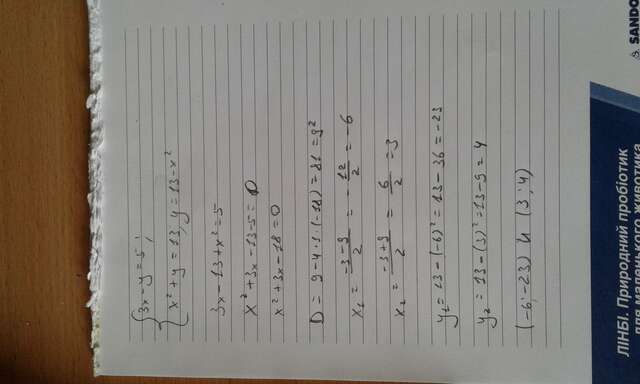 {3x-y=5;
x²+y=13, y=13-x²
3x-13+x²=5
x²+3x-13-5=0
x²+3x-18=0
D = 9-4·1·(-18)=81=9²
x₁ = (-3-9)/2 = -12/2 = -6
x₂ = (-3+9)/2 = 6/2 = 3
y₁ = 13-(-6)² = 13-36 = -23
y₂ = 13-(3)² = 13-9 = 4
(-6;-23) и (3;4)
ЛІНБІ. Природний пробіотик
для маленького животика
SANDO